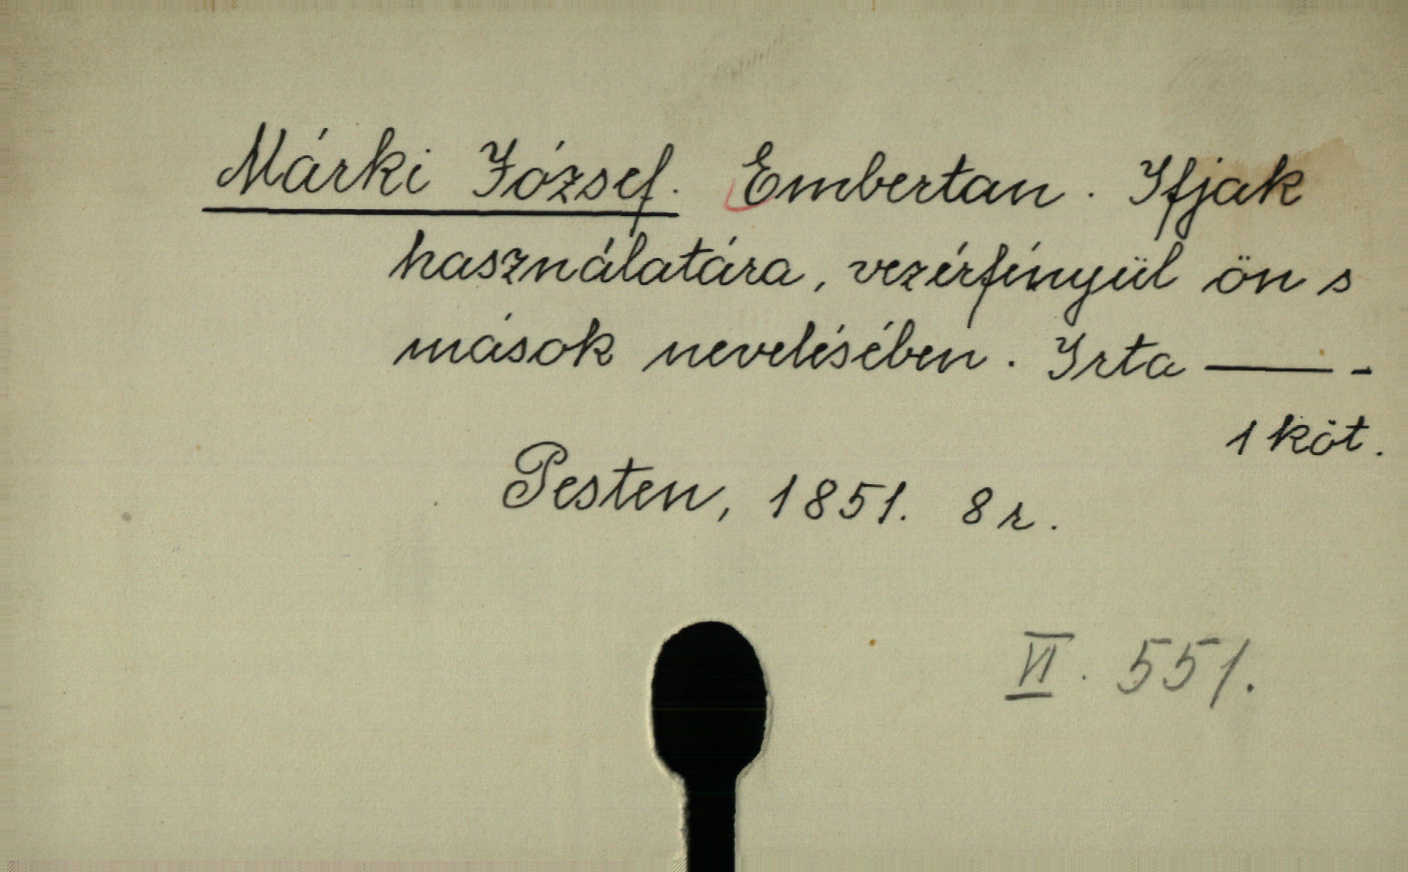 Márki József. Embertan. Ifjak
használatára, vezérfényül ön s
mások nevelésében. Irta —— -
1 köt.
Pesten, 1851. 8 r.
VI. 551.